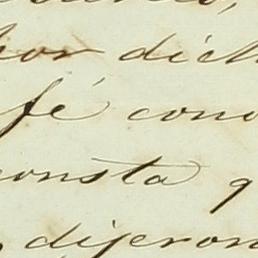 por dich
fé cono
consta q
dijeron